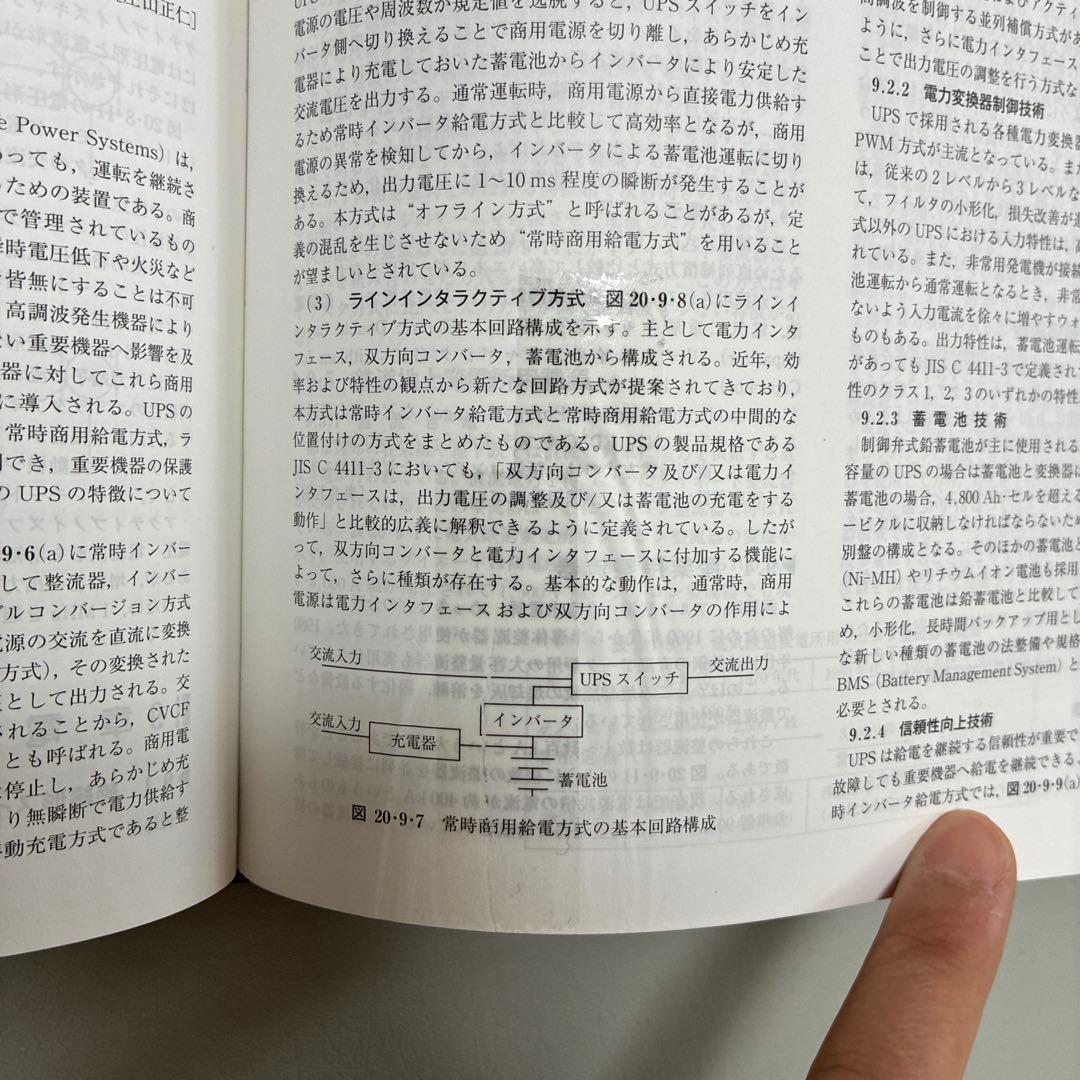 江田正仁]
e Power Systems) は,
あっても，運転を継続さ
ための装置である。商
で管理されているもの
時電圧低下や火災など
皆無にすることは不可
高調波発生機器により
い重要機器へ影響を及
器に対してこれら商用
に導入される。UPS の
常時商用給電方式，ラ
でき，重要機器の保護
の UPS の特徴について
9・6(a)に常時インバー
して整流器，インバー
ルコンバージョン方式
電源の交流を直流に変換
方式)，その変換された
として出力される。交
されることから，CVCF
とも呼ばれる。商用電
停止し，あらかじめ充
り無瞬断で電力供給す
動充電方式であると整
電源の電圧や周波数が規定値を逸脱すると，UPS スイッチをイン
バータ側へ切り換えることで商用電源を切り離し，あらかじめ充
電器により充電しておいた蓄電池からインバータにより安定した
交流電圧を出力する。通常運転時，商用電源から直接電力供給す
るため常時インバータ給電方式と比較して高効率となるが，商用
電源の異常を検知してから，インバータによる蓄電池運転に切り
換えるため，出力電圧に 1～10 ms 程度の瞬断が発生することが
ある。本方式は“オフライン方式”と呼ばれることがあるが，定
義の混乱を生じさせないため“常時商用給電方式”を用いること
が望ましいとされている。
(3) ラインインタラクティブ方式 図 20・9・8(a)にラインイ
ンタラクティブ方式の基本回路構成を示す。主として電力インタ
フェース，双方向コンバータ，蓄電池から構成される。近年，効
率および特性の観点から新たな回路方式が提案されてきており，
本方式は常時インバータ給電方式と常時商用給電方式の中間的な
位置付けの方式をまとめたものである。UPS の製品規格である
JIS C 4411-3 においても，「双方向コンバータ及び/又は電力イ
ンタフェースは，出力電圧の調整及び/又は蓄電池の充電をする
動作」と比較的広義に解釈できるように定義されている。したが
って，双方向コンバータと電力インタフェースに付加する機能に
よって，さらに種類が存在する。基本的な動作は，通常時，商用
電源は電力インタフェースおよび双方向コンバータの作用によ
交流入力
交流出力
UPS スイッチ
インバータ
交流入力
充電器
蓄電池
図 20・9・7 常時商用給電方式の基本回路構成
高調波を制御する並列補償方式があ
ように，さらに電力インタフェース
ことで出力電圧の調整を行う方式な
9.2.2 電力変換器制御技術
UPS で採用される各種電力変換器
PWM 方式が主流となっている。また
は，従来の 2 レベルから 3 レベルな
て，フィルタの小形化，損失改善が進
式以外の UPS における入力特性は，高
れている。また，非常用発電機が接続
池運転から通常運転となるとき，非常
ないよう入力電流を徐々に増やすウォ
ものもある。出力特性は，蓄電池運転
があっても JIS C 4411-3 で定義された
性のクラス 1，2，3 のいずれかの特性
9.2.3 蓄電池技術
制御弁式鉛蓄電池が主に使用される
容量の UPS の場合は蓄電池と変換器
蓄電池の場合，4,800 Ah・セルを超える
ービクルに収納しなければならないため
別盤の構成となる。そのほかの蓄電池と
(Ni-MH) やリチウムイオン電池も採用
これらの蓄電池は鉛蓄電池と比較して
め，小形化，長時間バックアップ用とし
な新しい種類の蓄電池の法整備や規格
BMS (Battery Management System) と
必要とされる。
9.2.4 信頼性向上技術
UPS は給電を継続する信頼性が重要で
故障しても重要機器へ給電を継続できる
時インバータ給電方式では，図 20・9・9(a)